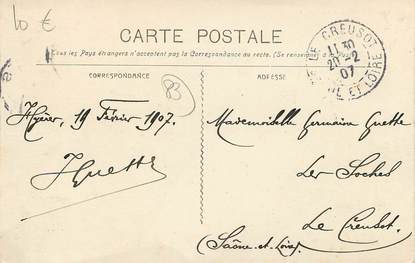 10 €
CARTE POSTALE
Tous les Pays étrangers n'acceptent pas la Correspondance au recto. (Se renseigner à la Poste)
CORRESPONDANCE
ADRESSE
LE CREUSOT
11 30
20-2
07
ET LOIRE
83
Hyères, 19 Février 1907.
Guette
Mademoiselle Germaine Guette
Les
Le Creusot.
(Saône-et-Loire)